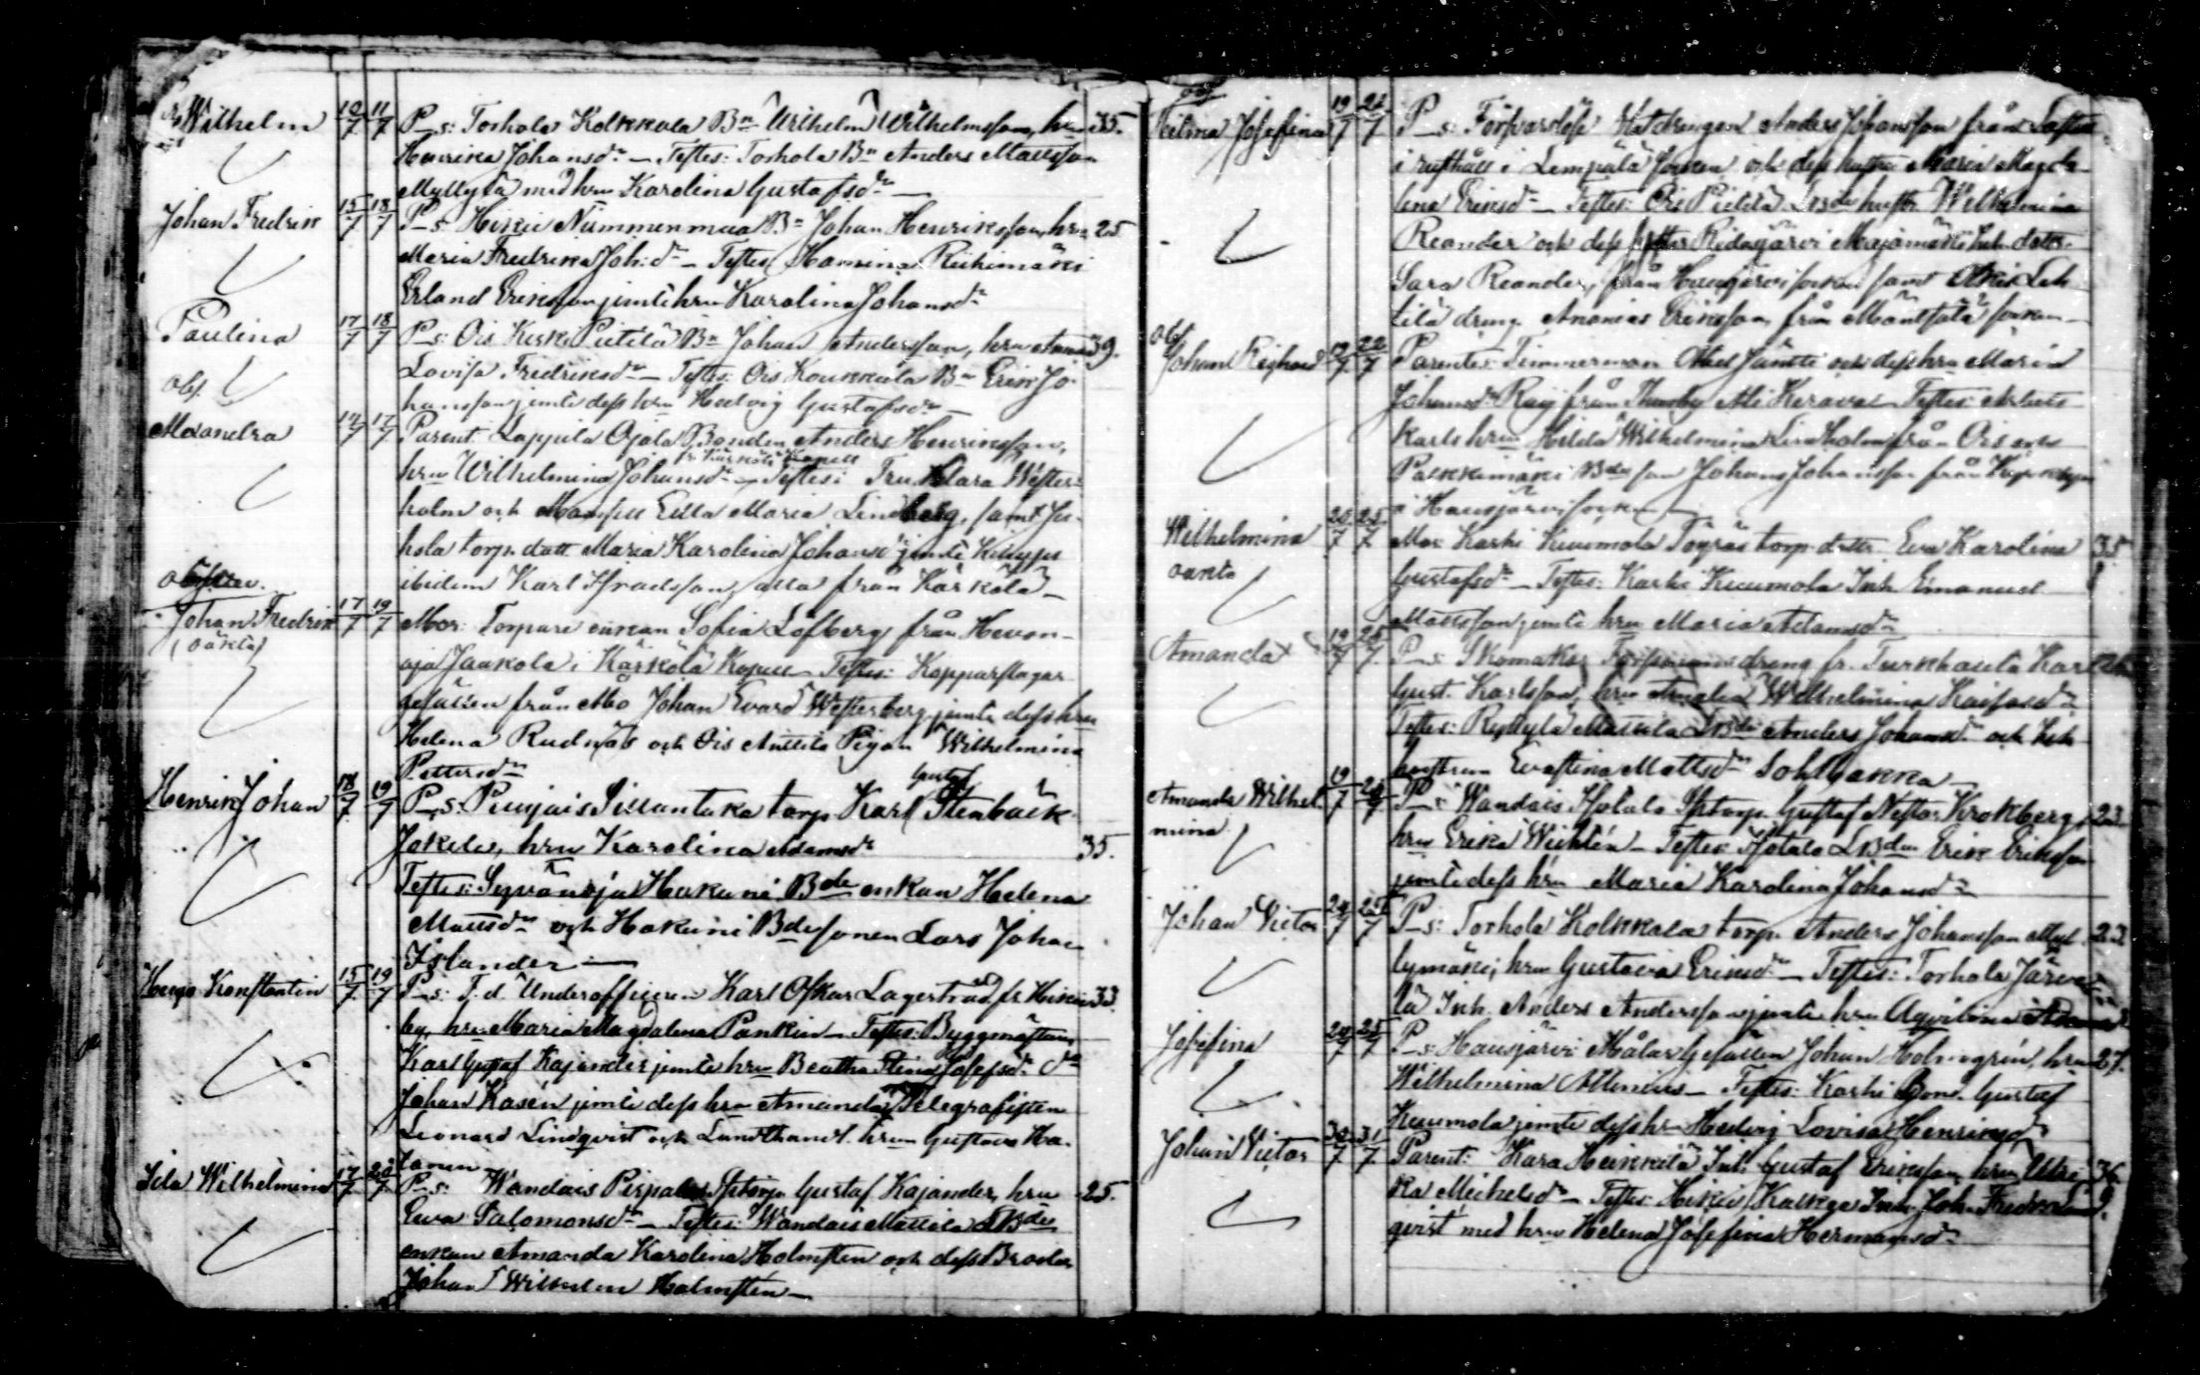 Wilhelm 10/7 11/7 P_s: Torhola Kolkkala Bn Wilhelm Wilhelmsson, hru 35.
Henrika Johansdr — Testes: Torhola Bn Anders Mattsson
Myllylä med hru Karolina Gustafsdr —
Johan Fredrik 15/7 18/7 P_s: Hikiä Nummenmaa Bn Johan Henriksson, hru 25
Maria Fredrika Joh:dr — Testes: Hamina Riihimäki
Erland Eriksson jemte hru Karolina Johansdr
Paulina 17/7 18/7 P_s: Ois Keski Pietilä Bn Johan Andersson, hru Amanda 39.
obs. Lovisa Fredriksdr — Testes: Ois Koukkula Bn Erik Jo-
hansson jemte dess hru Hedvig Gustafsdr —
Alexandra 14/7 17/7 Parent. Lappila Ojala Bonden Anders Henriksson,
fr. Kärkölä Kapell
hru Wilhelmina Johansdr — Testes: Fru Klara Wester-
holm och Mamsell Edla Maria Lindberg, samt Ju-
hola torp. dott. Maria Karolina Johansdr jemte
ibidem Karl Israelsson, alla från Kärkölä —
Johan Fredrik 17/7 19/7 Mor: Torpare enkan Sofia Löfberg från Hevon-
(oäkta)
oja Jaakola i Kärkölä Kapell — Testes: Kopparslagar
gesällen från Åbo Johan Evard Westerberg jemte dess hru
Helena Rudnäs och Ois Anttila Pigan Wilhelmina
Pettersdr
Henrik Johan 18/7 19/7 P_s: Puujais Sillantaka torp. Karl Gustaf Stenbäck
Jokela, hru Karolina Adamsdr 35.
Testes: Syvänoja Hakuni Bde enkan Helena
Mattsdr och Hakuni Bdesonen Lars Johan
Islander —
Hugo Konstantin 15/7 19/7 P_s: T.d. Underofficeren Karl Oskar Lagerstråd fr. Hikiä 33.
by, hru Maria Magdalena Pankin — Testes: Byggmästaren
Karl Gustaf Kajander jemte hru Beatha Stina Josefsdr
Johan Kasén jemte dess hru Amanda, Telegrafisten
Leonard Lindqvist och Landthandl. hru Gustava Ha-
Ida Wilhelmina 17/7 20/7 P_s: Wandais Pispala Sptorp. Gustaf Kajander, hru 25.
Ewa Salomonsdr — Testes: Wandais Mattila LBde
enkan Amanda Karolina Holmsten och dess Broder
Johan Wilhelm Holmsten —
obs
Selma Josefina 19/7 22/7 P_s: Anders Johansson från
i Lempälä socken och dess hustru Maria Magda-
lena Eriksdr — Testes: Ois Pietilä LBde hustr. Wilhelmina
Reander och dess syster Ridasjärvi Majamäki Inh. dotter
Sara Reander, från Hausjärvi socken samt Ois Leh-
tilä dreng Ananias Eriksson från Mäntsälä socken —
obs
Johan Richard 19/7 22/7 Parentes: Timmerman Abel Jäntti och dess hru Maria
Johansdr från Thusby Ali Kerava — Testes: Arbets-
karls hru Hilda Wilhelmina Lindholm från Ois och
Palkkimäki Bde son Johan Johansson från
i Hausjärvi socken —
Wilhelmina 20/7 25/7 Mor: Karhi Kuumola Töyräs torp. dotter Eva Karolina 35
oäkta Gustafsdr — Testes: Karhi Kuumola Inh. Emanuel
Mattsson jemte hru Maria Adamsdr
Amanda 19/7 25/7 P_s: Skomakar dreng fr. Turkhauta Karl
Gust. Karlsson, hru Amalia Wilhelmina Kaisasdr
Testes: Ryttylä Mattila LBde Anders Johansd. och Inh.
hustrun Evastina Mattsdr Sohlbakka —
Amanda Wilhel- 19/7 25/7 P_s: Wandais Hotala Sptorp. Gustaf Nestor Krokberg, 23.
mina hru Erika Wichtén — Testes: Hotala LBden Erik Eriksson
jemte dess hru Maria Karolina Johansdr —
Johan Victor 24/7 25/7 P_s: Torhola Kolkkala torp. Anders Johansson Myl- 23.
lymäki, hru Gustava Eriksdr — Testes: Torhola Järve-
lä Inh. Anders Andersson jemte hru Aqvilina
Josefina 24/7 25/7 P_s: Hausjärvi Målar Gesällen Johan Holmgrén, hru 27.
Wilhelmina Allenius — Testes: Karhi Bon. Gustaf
Kuumola jemte dess hru Hedvig Lovisa Henriksdr
Johan Victor 30/7 31/7 Parent: Kara Heikkilä Inh. Gustaf Eriksson, hru Ulri- 36
ka Michelsdr — Testes: Hikiä Kalkge Inh. Joh. Fredr. Lind-
qvist med hru Helena Josefina Hermansdr —